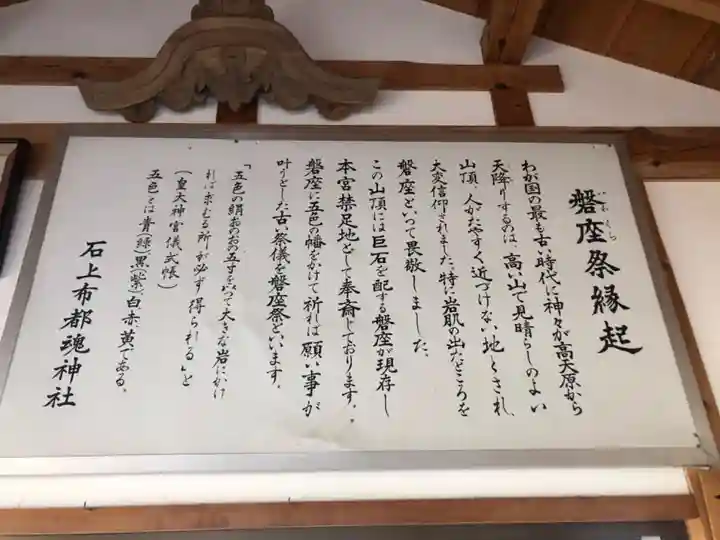 磐座祭縁起
いわくら
わが国の最も古い時代に神々が高天原から
天降りするのは、高い山で見晴らしのよい
山頂、人がたやすく近づけない地とされ、
大変信仰されました。特に岩肌の出たところを
磐座といって畏敬しました。
この山頂には巨石を配する磐座が現存し
本宮禁足地として奉斎じております。
磐座に五色の幡をかけて祈れば願い事が
叶うとした古い祭儀を磐座祭といいます。
「五色の絹おのおの五寸をもって大きな岩にかけ
れば求むる所が必ず得られる」と
(皇大神宮儀式帳)
五色とは青(緑)黒(紫)、白、赤、黄である。
石上布都魂神社